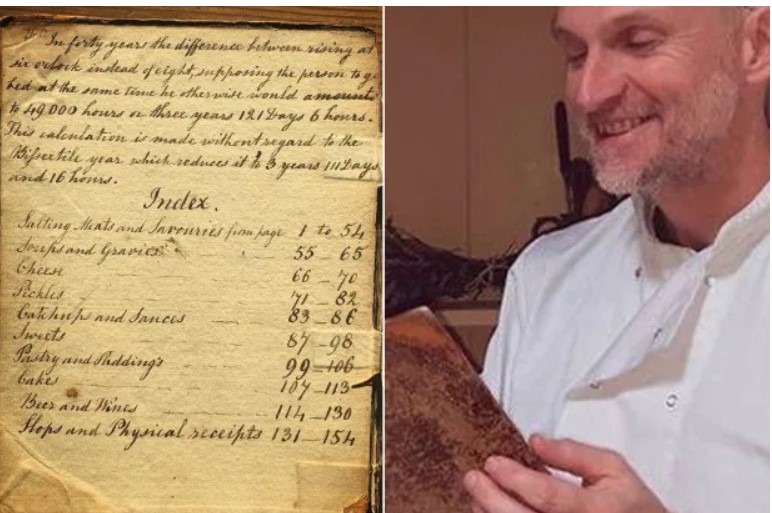 In forty years the difference between rising at
six o'clock instead of eight, supposing the person to go
bed at the same time he otherwise would amounts
to 49.000 hours or three years 121 Days 6 hours.
This calculation is made without regard to the
Bifsextile year which reduces it to 3 years 111 Days
and 16 hours.
Index.
Salting Meats and Savouries from page 1 to 54
Soups and Gravies 55 - 65
Cheese 66 - 70
Pickles 71 - 82
Catchups and Sauces 83 - 86
Sweets 87 - 98
Pastry and Puddings 99 - 106
Cakes 107 - 113
Beer and Wines 114 - 130
Slops and Physical receipts 131 - 154